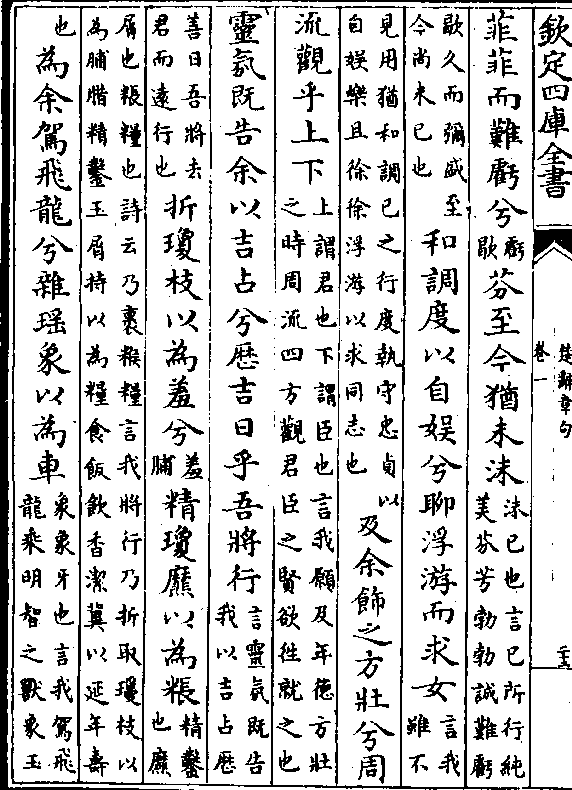 欽定四庫全書
楚辭章句
卷一
菲菲而難虧兮虧歇芬至今猶未沬沬已也言已所行純美芬芳勃勃誠難虧
歇久而彌盛至今尚未已也和調度以自娛兮聊浮游而求女言我雖不
見用猶和調已之行度執守忠貞以自娛樂且徐徐浮游以求同志也及余飾之方壯兮周
流觀乎上下上謂君也下謂臣也言我願及年德方壯之時周流四方觀君臣之賢欲往就之也
靈氛既告余以吉占兮歷吉日乎吾將行言靈氛既告我以吉占歷
善日吾將去君而遠行也折瓊枝以為羞兮羞脯精瓊爢以為粻精鑿也爢
屑也粻糧也詩云乃裹餱糧言我將行乃折取瓊枝以為脯腊精鑿玉屑持以為糧食飯飲香潔冀以延年壽
也為余駕飛龍兮雜瑤象以為車象象牙也言我駕飛龍乘明智之獸象玉